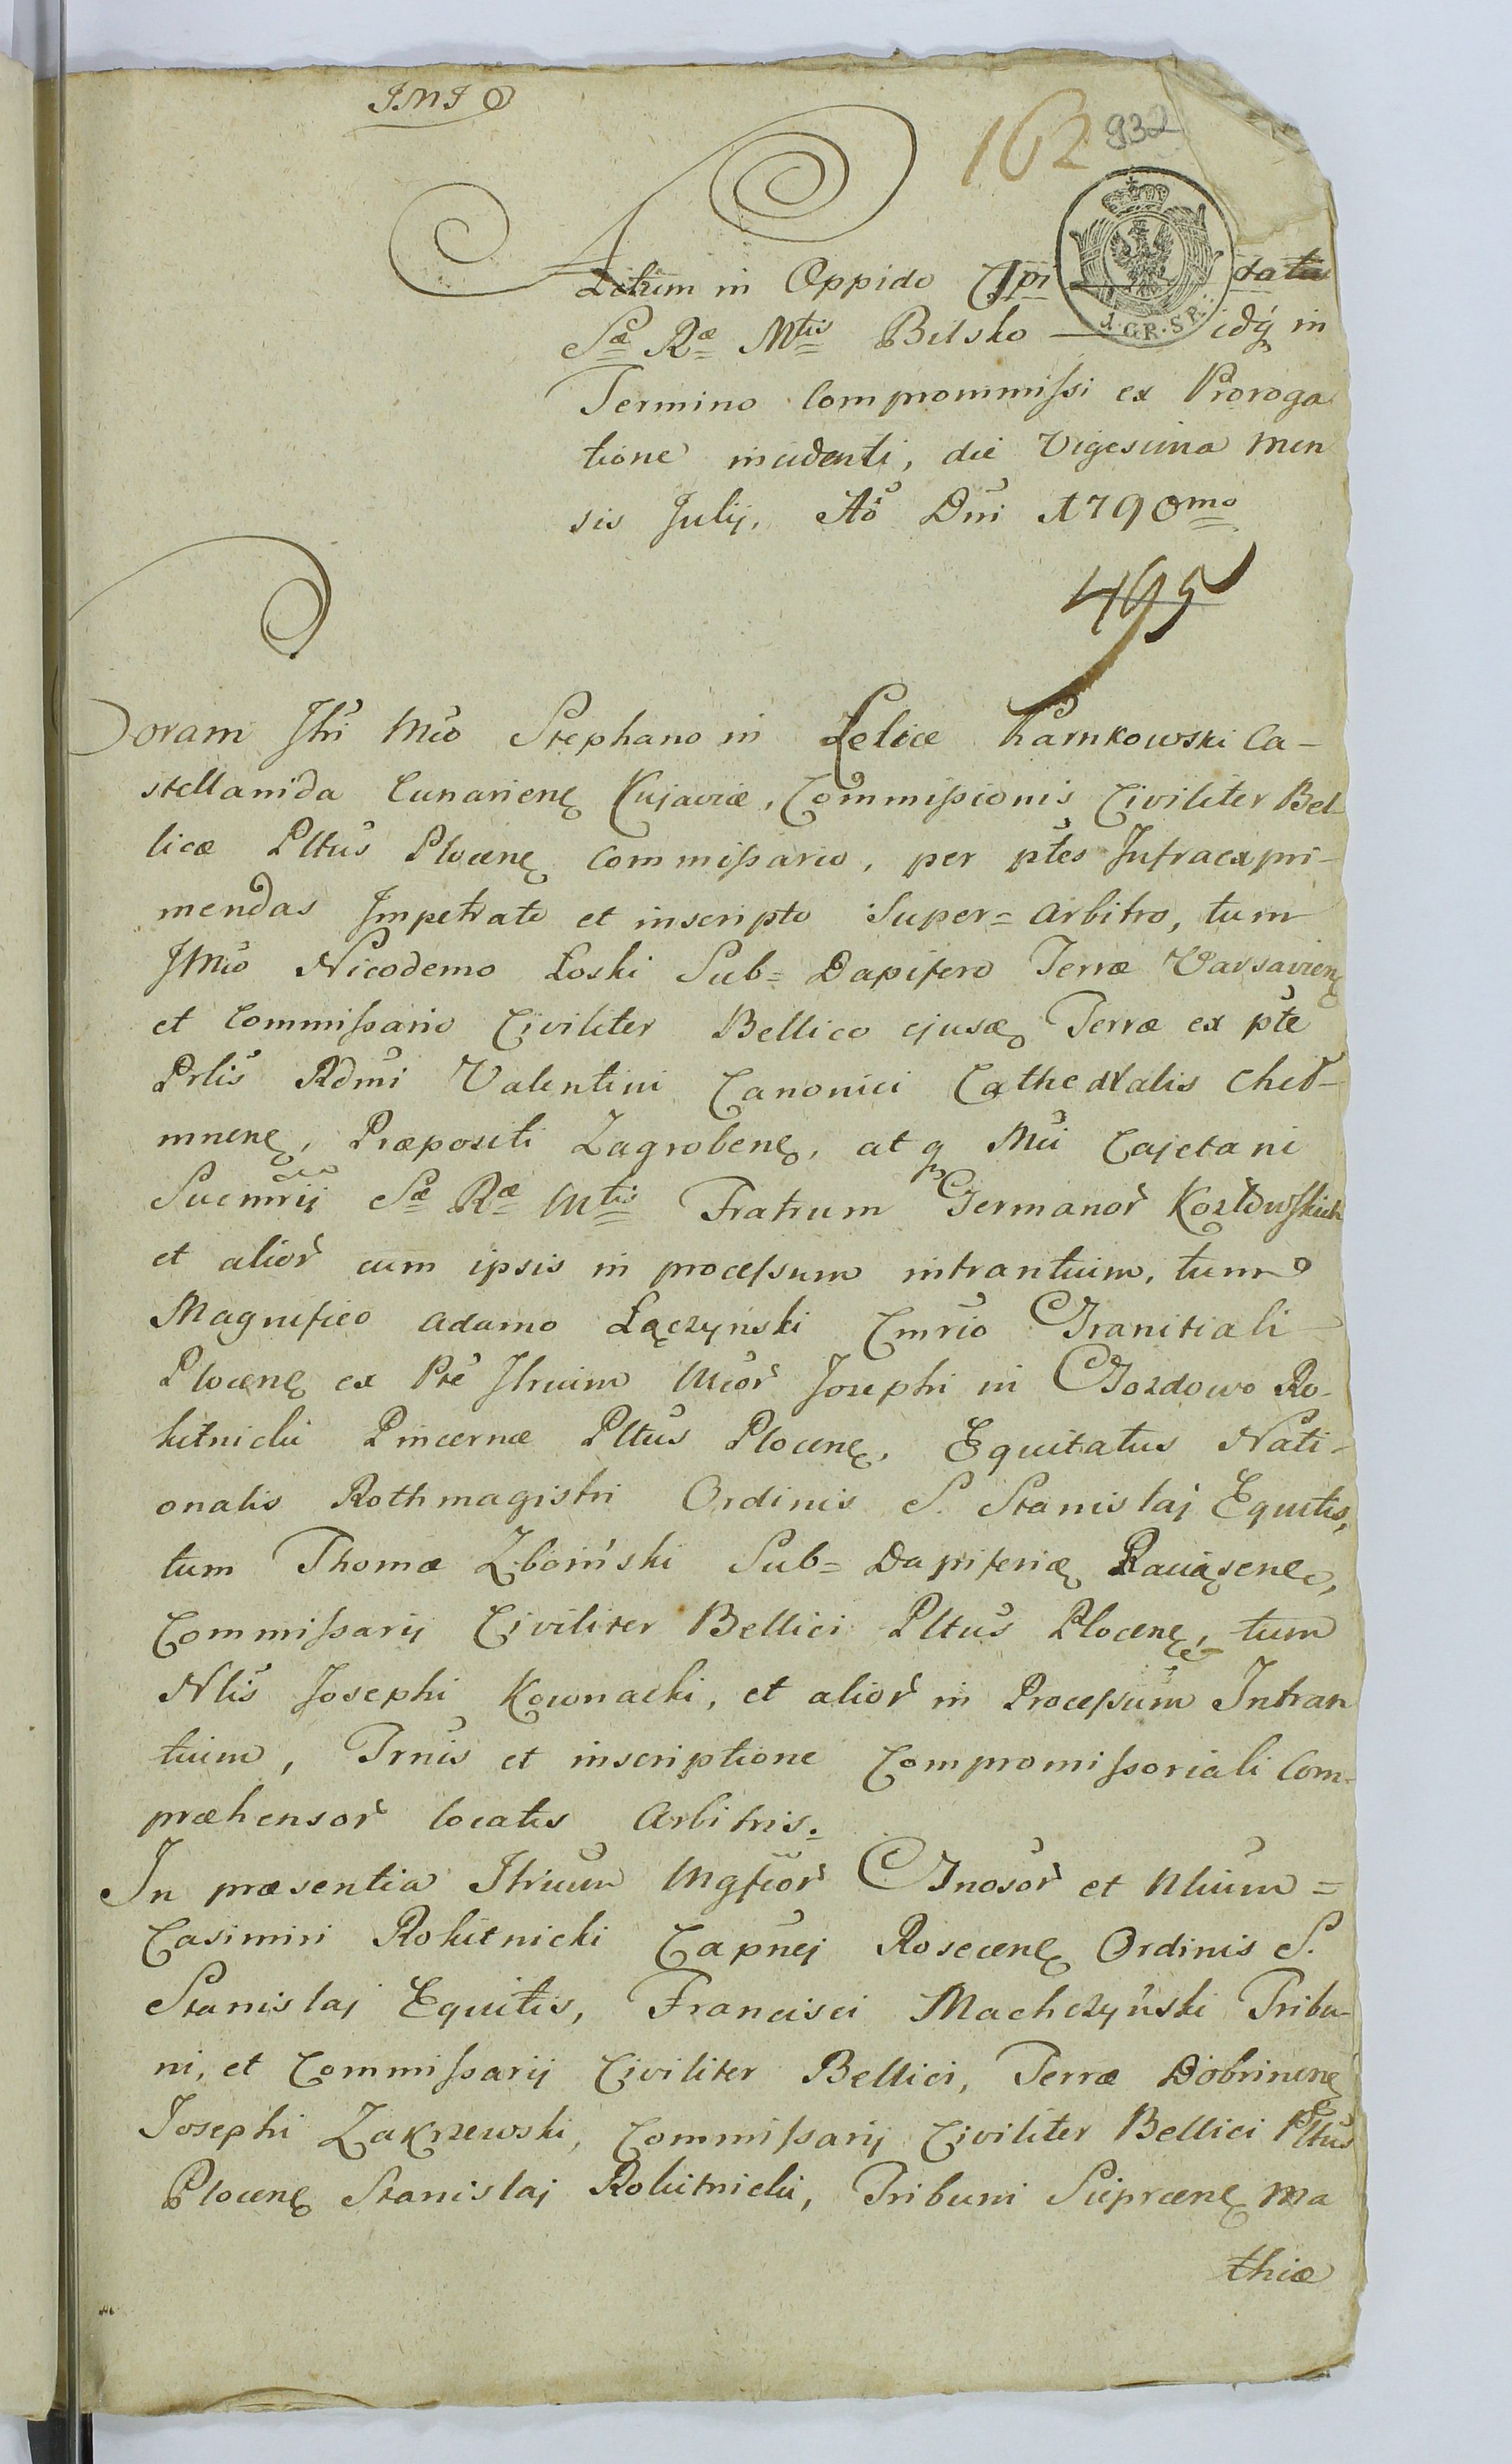 J.M.J.
162 932
Actum in Oppido Cpi tatis
Sæ Ræ Mtis Bilsko idq in
Termino Comprommissi ex Proroga
tione incidenti, die Vigesima men
sis Julij, Aõ Dni 1790mo
1. GR. SR.
495
Coram Jlri Mco Stephano in Lelice Karnkowski Ca-
stellanida Cunariene Kujaviæ, Commissionis Civiliter Bel-
licæ Pltus Plocene Commissario, per ptes Infraexpri-
mendas Impetrato et inscripto Super= Arbitro, tum
JMco Nicodemo Łoski Sub= Dapifero Terræ Varsaviene
et Commissario Civiliter Bellico ejusdem Terræ ex pte
Prlis Rdmi Valentini Canonici Cathedralis Cheł-
mnene, Præpositi Zagrobene, atq Mci Cajetani
Sucmrij Sæ Ræ Mtis Fratrum Germanor Kozłowskich
et alior cum ipsis in processum intrantium, tum
Magnifico Adamo Łączyński Cmrio Graniciali
Plocene ex Pte Jlrium Mcor Josephi in Gozdowo Ro-
kitnicki Pincernæ Pltus Plocene, Equitatus Nati-
onalis Rothmagistri Ordinis S. Stanislaj Equitis,
tum Thomæ Zboiński Sub= Dapiferidæ Raciąsene,
Commissarij Civiliter Bellici Pltus Plocene, tum
Nlis Josephi Kownacki, et alior in Processum Intran
tium, Trnis et inscriptione Compromissoriali Com-
præhensor locatis Arbitris.
In præsentia Jlrium Mgficor Gnosor et Nlium=
Casimiri Rokitnicki Capnej Rosecene Ordinis S.
Stanislaj Equitis, Francisci Machczyński Tribu-
ni, et Commissarij Civiliter Bellici, Terræ Dobrinene
Josephi Zakrzewski, Commissarij Civiliter Bellici Pltus
Plocene Stanislaj Rokitnicki, Tribuni Sieprcene Ma
thiæ